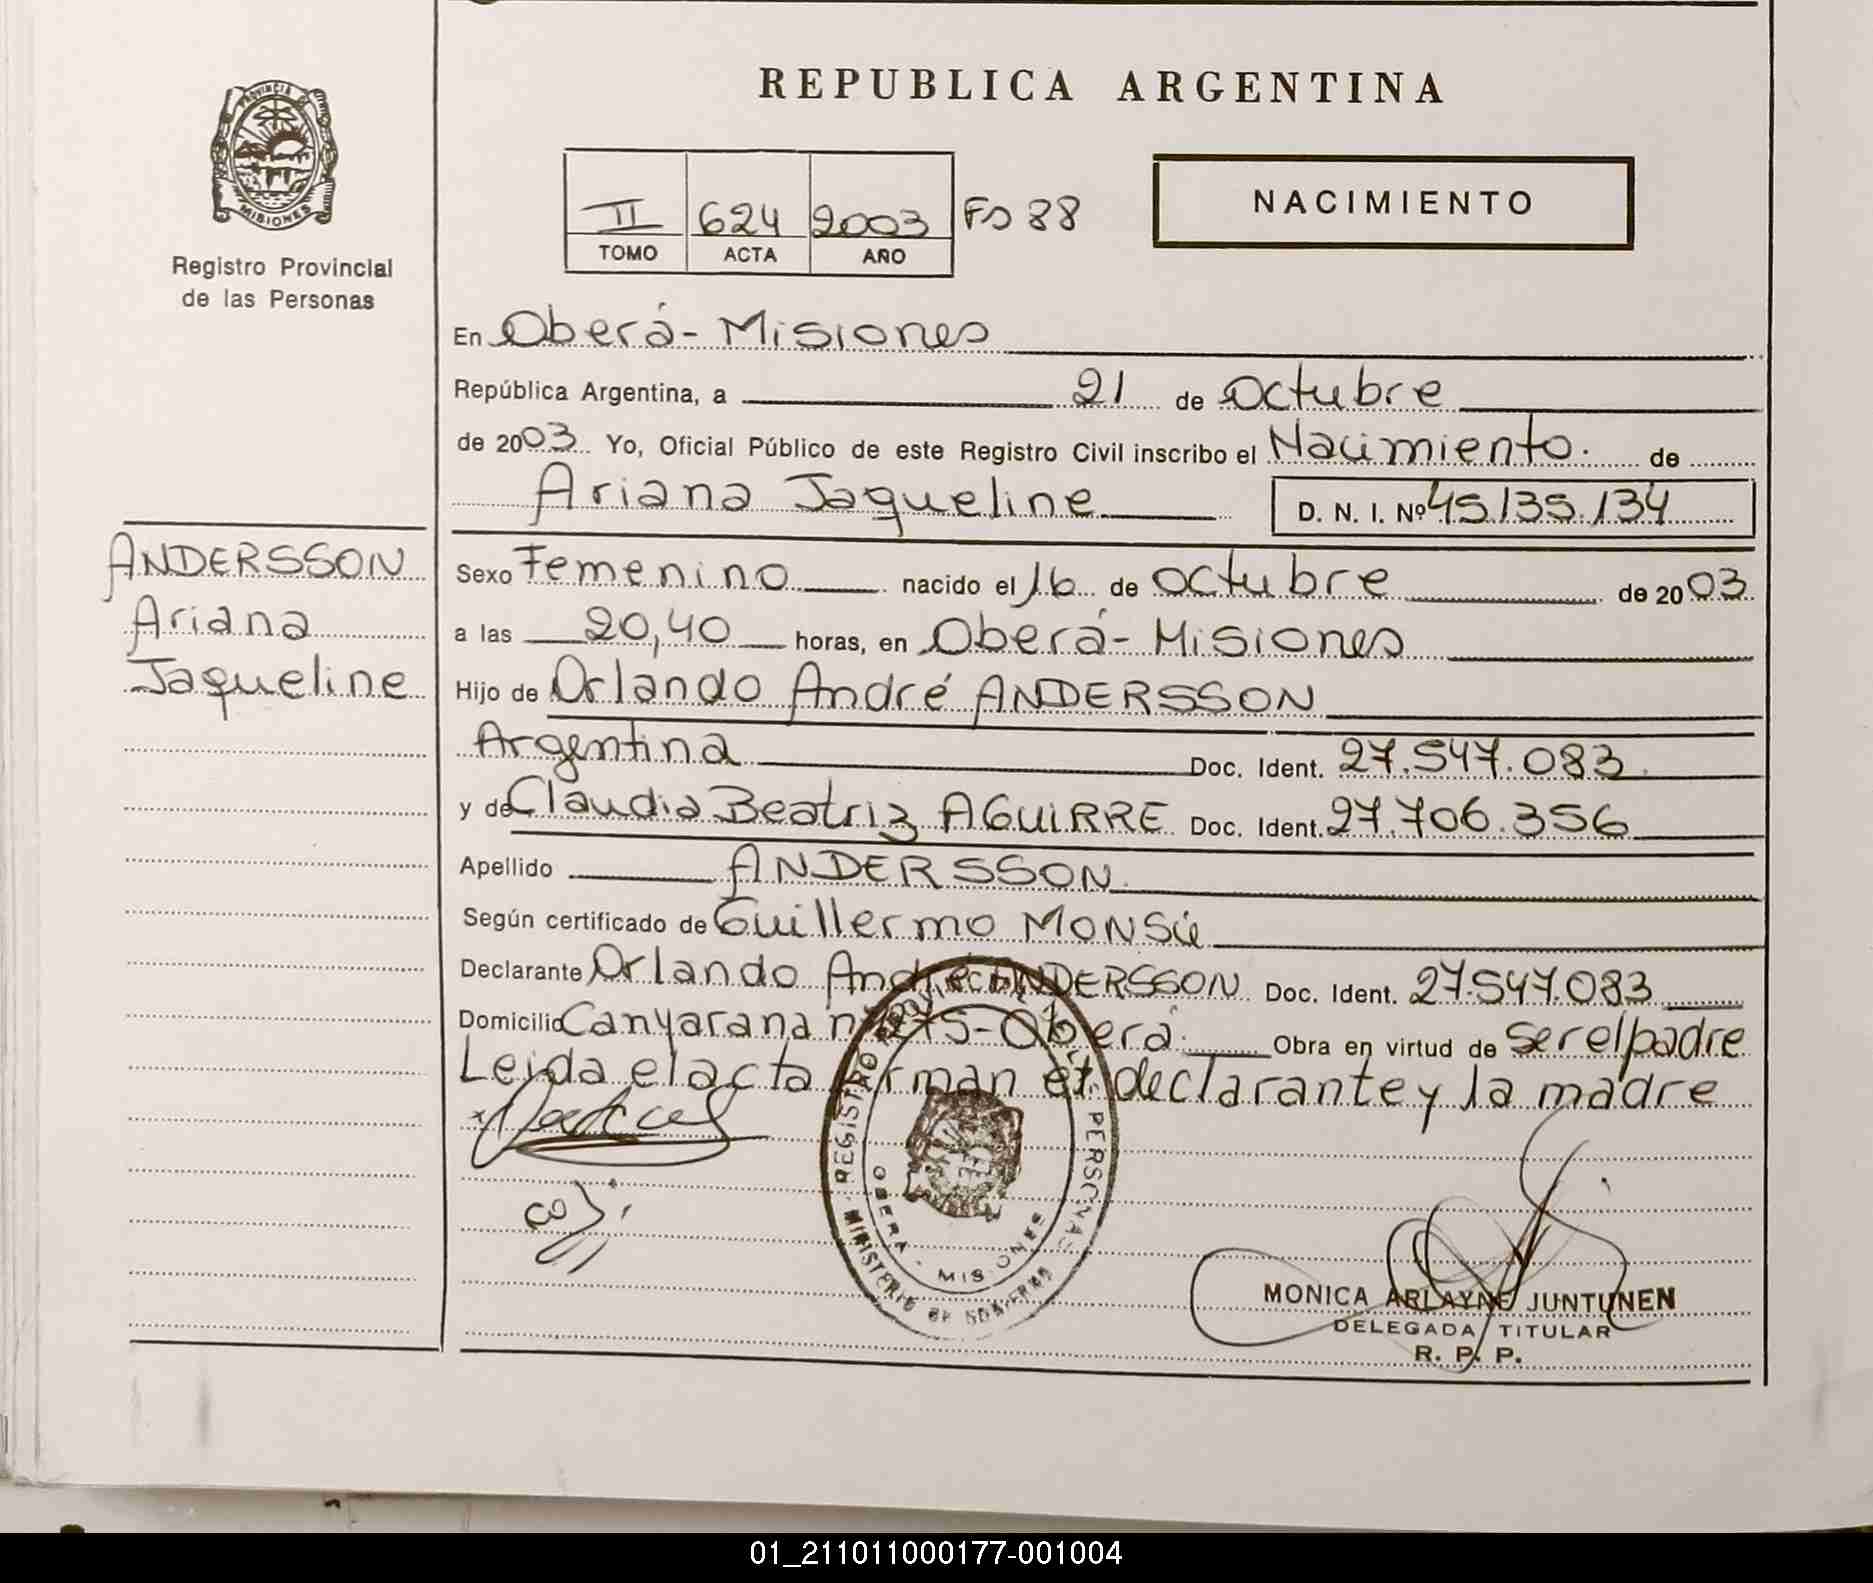 REPUBLICA ARGENTINA
PROVINCIA DE MISIONES
Registro Provincial
de las Personas
II 624 2003 Fo 88
TOMO ACTA AÑO
NACIMIENTO
En Oberá - Misiones
República Argentina, a 21 de Octubre
de 2003. Yo, Oficial Público de este Registro Civil inscribo el Nacimiento. de
Ariana Jaqueline D. N. I. Nº 45.135.134
ANDERSSON
Ariana
Jaqueline
Sexo Femenino nacido el 16 de Octubre de 2003
a las 20,40 horas, en Oberá - Misiones
Hijo de Orlando André ANDERSSON
Argentina Doc. Ident. 27.547.083
y de Claudia Beatriz AGUIRRE Doc. Ident. 27.706.356
Apellido ANDERSSON
Según certificado de Guillermo MONSÚ
Declarante Orlando André ANDERSSON Doc. Ident. 27.547.083
Domicilio Canyarana nº 275 - Oberá Obra en virtud de ser el padre
Leida el acta firman el declarante y la madre
REGISTRO PROVINCIAL PERSONAS
OBERA - MISIONES
MINISTERIO DE GOBIERNO
MONICA ARLAYNE JUNTUNEN
DELEGADA TITULAR
R. P. P.
01_211011000177-001004